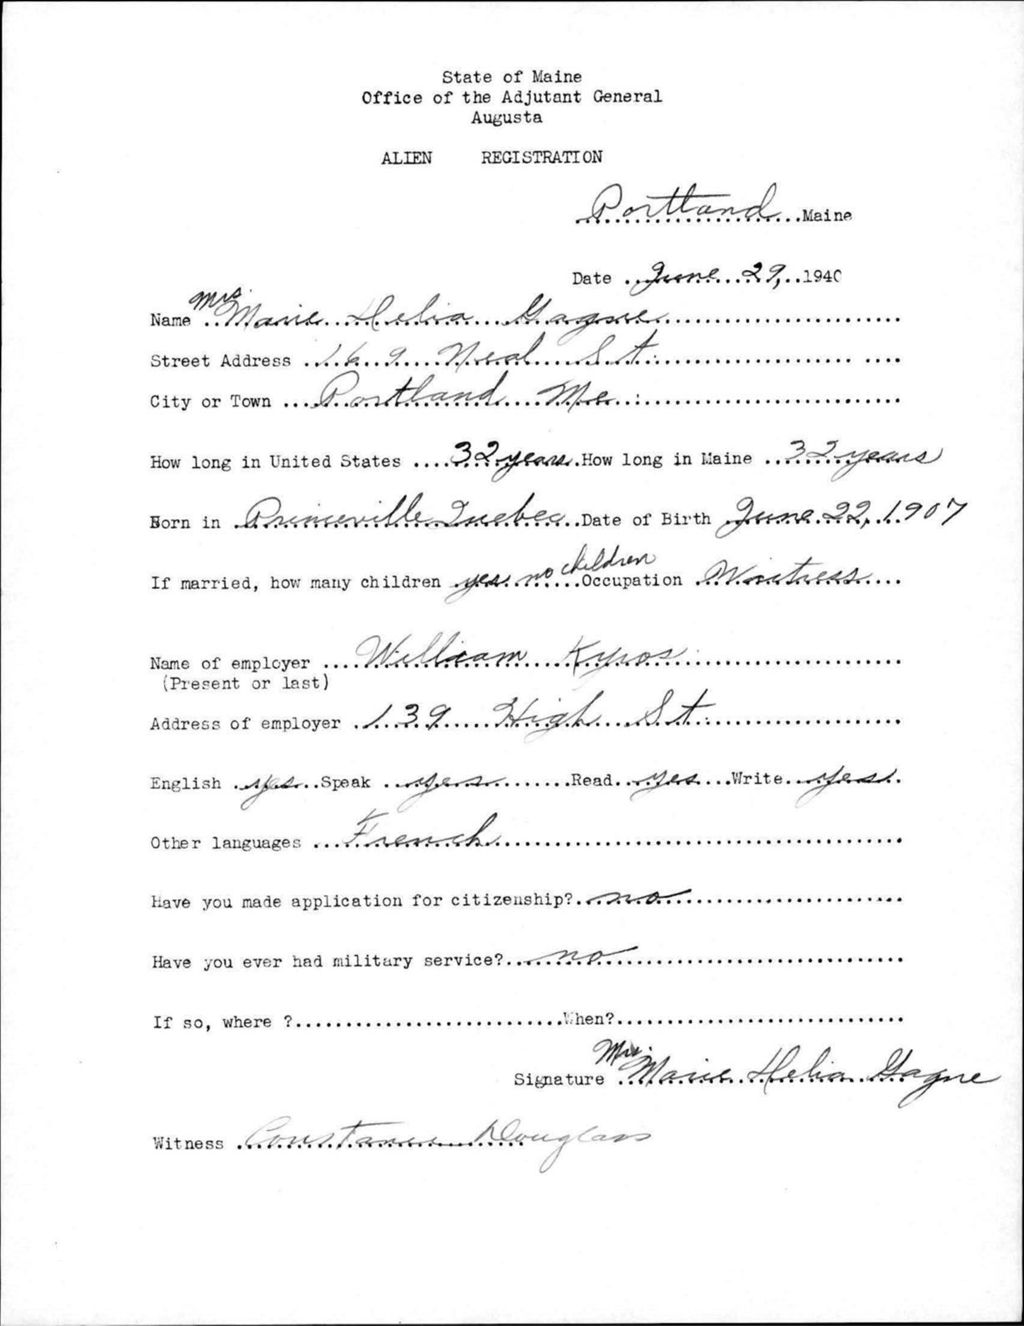 State of Maine
Office of the Adjutant General
Augusta
ALIEN REGISTRATION
Portland Maine
Date June 29, 1940
Name Mrs Marie Helia Gagne
Street Address 169 Neal St.
City or Town Portland Me.
How long in United States 32 years How long in Maine 32 years
Born in Princeville Quebec Date of Birth June 22, 1907
If married, how many children yes no children Occupation Waitress
Name of employer William Kyros
(Present or last)
Address of employer 139 High St.
English yes Speak yes Read yes Write yes
Other languages French
Have you made application for citizenship? no
Have you ever had military service? no
If so, where ? When?
Signature Mrs. Marie Helia Gagne
Witness Constance Douglass